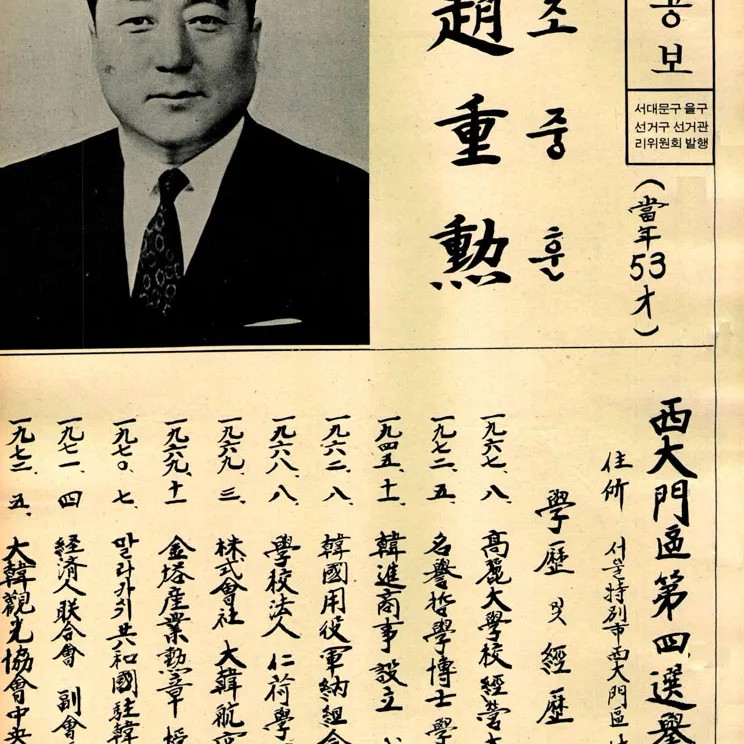 공보
서대문구 을구
선거구 선거관
리위원회 발행
(當年53才)
조중훈
趙重勳
西大門區第四選擧
住所 서울特別市西大門區
學歷 및 經歷
一九六七、八 高麗大學校經營大
一九七二、五、 名譽哲學博士 學
一九四五、十 韓進商事 設立
一九六二、八、 韓國用役軍納組合
一九六八、八、 學校法人 仁荷學
一九六九、三、 株式會社 大韓航空
一九六九、十一 金塔産業勲章
一九七〇、七、 말라카시共和國駐韓
一九七一、四 経済人联合會 副會
一九七二、五、 大韓觀光協會中央